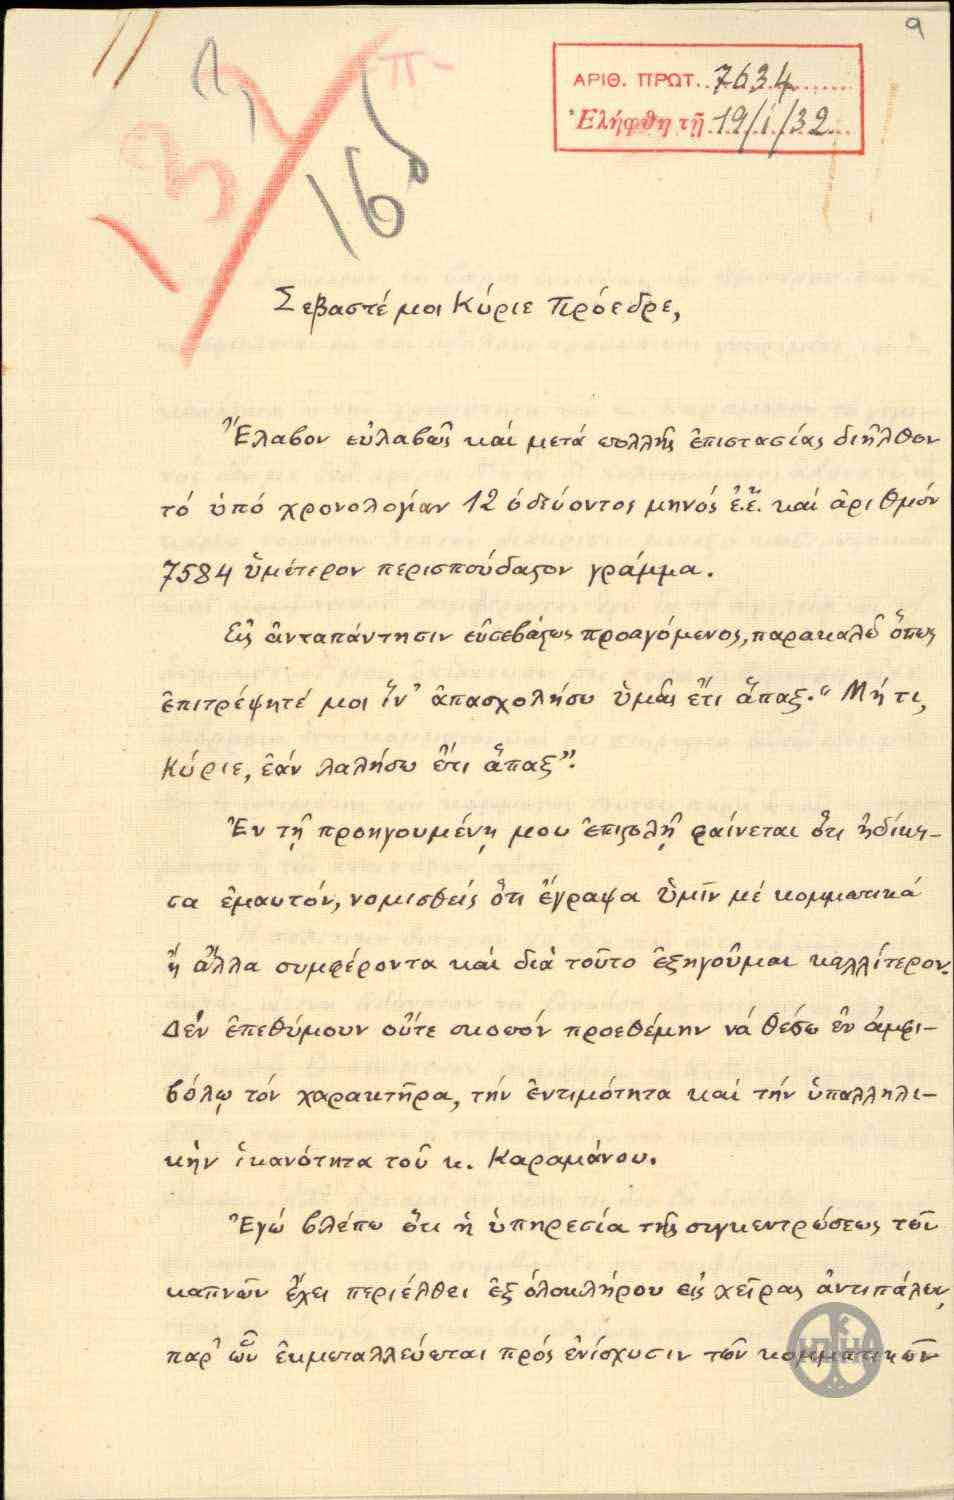 9
ΑΡΙΘ. ΠΡΩΤ. 7634
Ἐλήφθη τῇ 19/1/32
π-
165
Σεβαστέ μοι Κύριε Πρόεδρε,
Ἔλαβον εὐλαβῶς καί μετά πολλῆς ἐπιστασίας διῆλθον
τό ὑπό χρονολογίαν 12 ὁδεύοντος μηνός ἐ.ἔ. καί ἀριθμόν
7584 ὑμέτερον περισπούδαστον γράμμα.
Εἰς ἀνταπάντησιν εὐσεβάστως προαγόμενος, παρακαλῶ ὅπως
ἐπιτρέψητέ μοι ἵν' ἀπασχολήσω ὑμᾶς ἔτι ἅπαξ. "Μή τι,
Κύριε, ἐάν λαλήσω ἔτι ἅπαξ".
Ἐν τῇ προηγουμένῃ μου ἐπιστολῇ φαίνεται ὅτι ἠδίκη-
σα ἐμαυτόν, νομισθείς ὅτι ἔγραψα ὑμῖν μέ κομματικά
ἤ ἄλλα συμφέροντα καί διά τοῦτο ἐξηγοῦμαι καλλίτερον.
Δέν ἐπεθύμουν οὔτε σκοπόν προεθέμην νά θέσω ἐν ἀμφι-
βόλῳ τόν χαρακτῆρα, τήν ἐντιμότητα καί τήν ὑπαλληλι-
κήν ἱκανότητα τοῦ κ. Καραμάνου.
Ἐγώ βλέπω ὅτι ἡ ὑπηρεσία τῆς συγκεντρώσεως τῶν
καπνῶν ἔχει περιέλθει ἐξ ὁλοκλήρου εἰς χεῖρας ἀντιπάλων,
παρ' ὧν ἐκμεταλλεύεται πρός ἐνίσχυσιν τῶν κομματικῶν